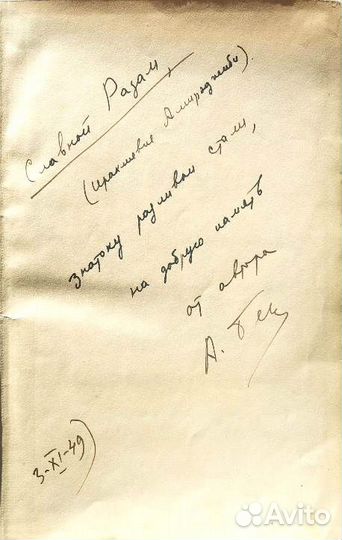 Славной Разам,
(Ираклиевне Амираджиби).
знатоку разливки стали,
на добрую память
от автора
А. Бек
3-XI-49
Avito